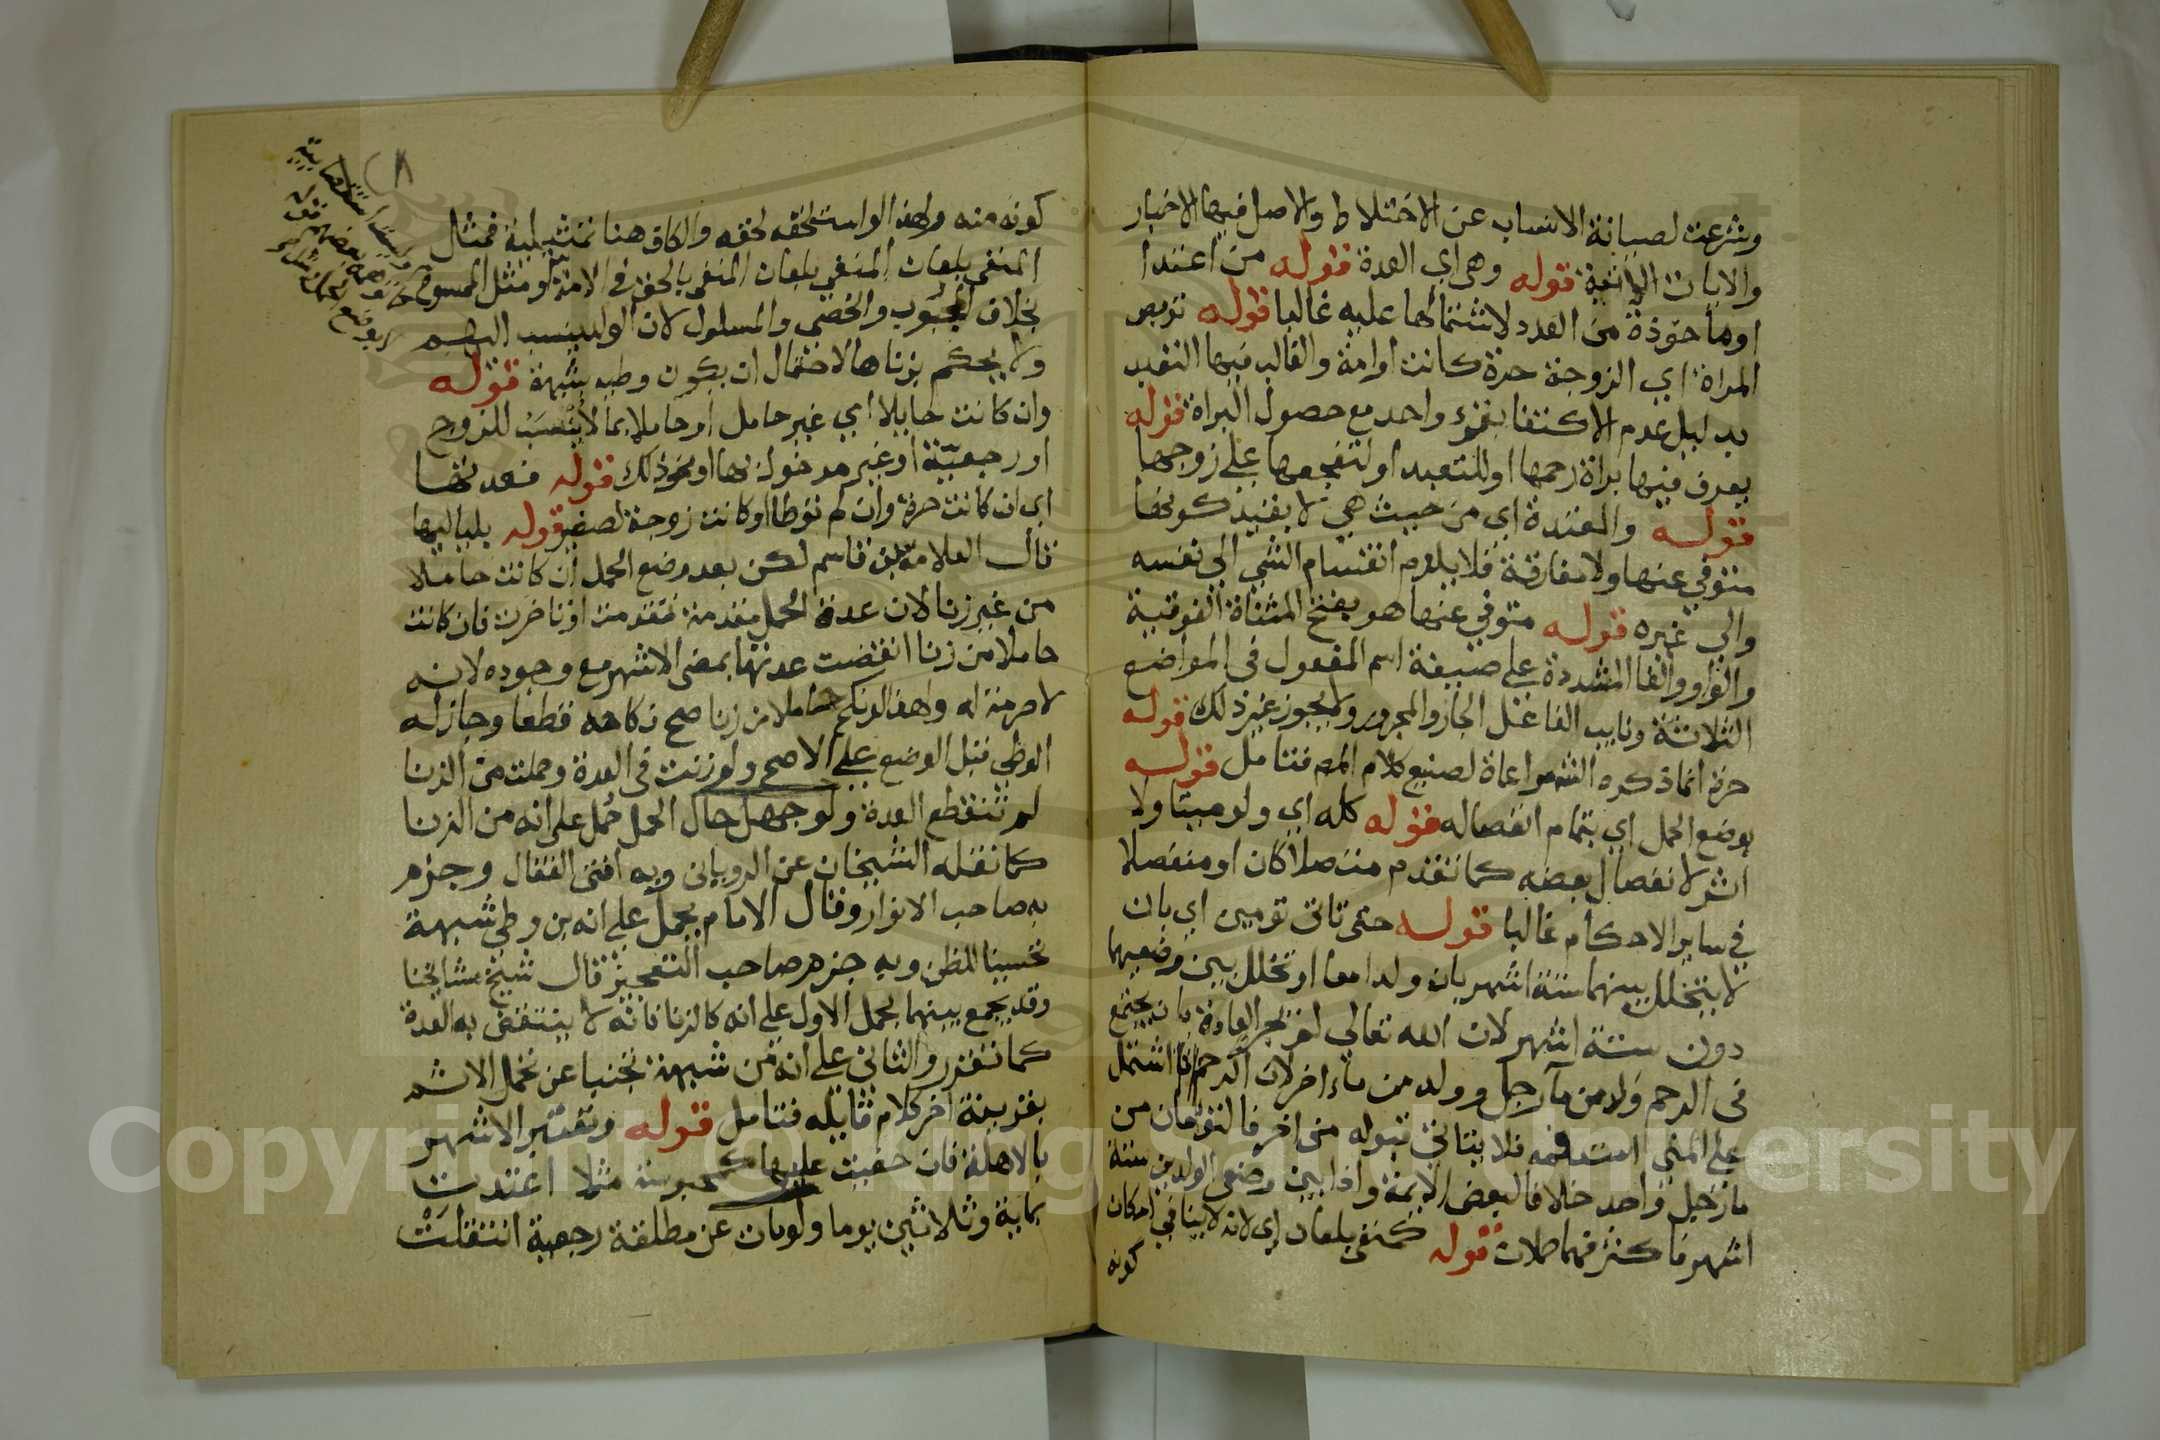 وشرعت لصيانة الانساب عن الاختلاط والاصل فيها الاخبار
والايات الاتية قوله وهي اي العدة قوله من اعتدا
او ماخوذة من العدد لاشتمالها عليه غالبا قوله تربص
المراة اي الزوجة حرة كانت او امة والغالب فيها التعبد
بدليل عدم الاكتفا بقرء واحد مع حصول البراة قوله
يعرف فيها براة رحمها او للتعبد او لتفجعها علي زوجها
قوله والمعتدة اي من حيث هي لا بقيد كونها
متوفي عنها ولا مفارقة فلا يلزم انقسام الشي الي نفسه
والي غيره قوله متوفي عنها هو بفتح المثناة الفوقية
والواو والفا المشددة علي صيغة اسم المفعول في المواضع
الثلاثة ونايب الفاعل الجار والمجرور ولا يجوز غير ذلك قوله
حرة انما ذكره الشم مراعاة لصنيع كلام المص فتامل قوله
بوضع الحمل اي بتمام انفصاله قوله كله اي ولو ميتا ولا
اثر لانفصال بعضه كما تقدم متصلا كان او منفصلا
في ساير الاحكام غالبا قوله حتى ثاني توءمين اي بان
لا يتخلل بينهما ستة اشهر بان ولدا معا او تخلل بين وضعيهما
دون ستة اشهر لان الله تعالي لم يجر العادة بان يجتمع
في الرحم ولد من ما رجل وولد من ماء اخر لان الرحم اذا اشتمل
علي المني انسد فمه فلا يتاتي قبوله من اخر فالتوءمان من
ما رجل واحد خلافا لبعض الايمة واذا بين وضعي الولدين ستة
اشهر فاكثر فهما حملان قوله كمنفي بلعان اي لانه لا ينافي امكان
كونه
كونه منه ولهذا لو استلحقه لحقه والكاف هنا تمثيلية فمثال
المنفي بلعان المنفي بلعان المنفي بالحق في الامة او مثل الممسوح
بخلاف المجبوب والخصي والمسلول لان الولد ينسب اليهم
ولا يحكم بزناها لاحتمال ان يكون وطيه بشبهة قوله
وان كانت حايلا اي غير حامل او حاملا بما لا ينسب للزوج
او رجعيّة او غير مدخول بها او نحو ذلك قوله فعدتها
اي ان كانت حرة وان لم توطا او كانت زوجة لصغير قوله بلياليها
قال العلامة بن قاسم لكن بعد وضع الحمل ان كانت حاملا
من غير زنا لان عدة الحمل مقدمة تقدمت او تاخرت فان كانت
حاملا من زنا انقضت عدتها بمضي الاشهر مع وجوده لانه
لا حرمة له ولهذا لو نكح حاملا من زنا صح نكاحه قطعا وجاز له
الوطي قبل الوضع علي الاصح ولو زنت في العدة وحملت من الزنا
لم تنقطع العدة ولو جهل حال الحمل حُمل علي انه من الزنا
كما نقله الشيخان عن الروياني وبه افتي القفال وجزم
به صاحب الانوار وقال الامام يحمل علي انه من وطي شبهة
تحسينا للظن وبه جزم صاحب التعجيز قال شيخ مشايخنا
وقد يجمع بينهما بحمل الاول علي انه كالزنا في انه لا ينتقض به العدة
كما تقرر والثاني علي انه من شبهة تجنبا عن تحمل الاثم
بقرينة اخر كلام قايله فتامل قوله وتعتبر الاشهر
بالاهلة فان خفيت عليها كمحبوسة مثلا اعتدت
بماية وثلاثين يوما ولو مات عن مطلقة رجعية انتقلت